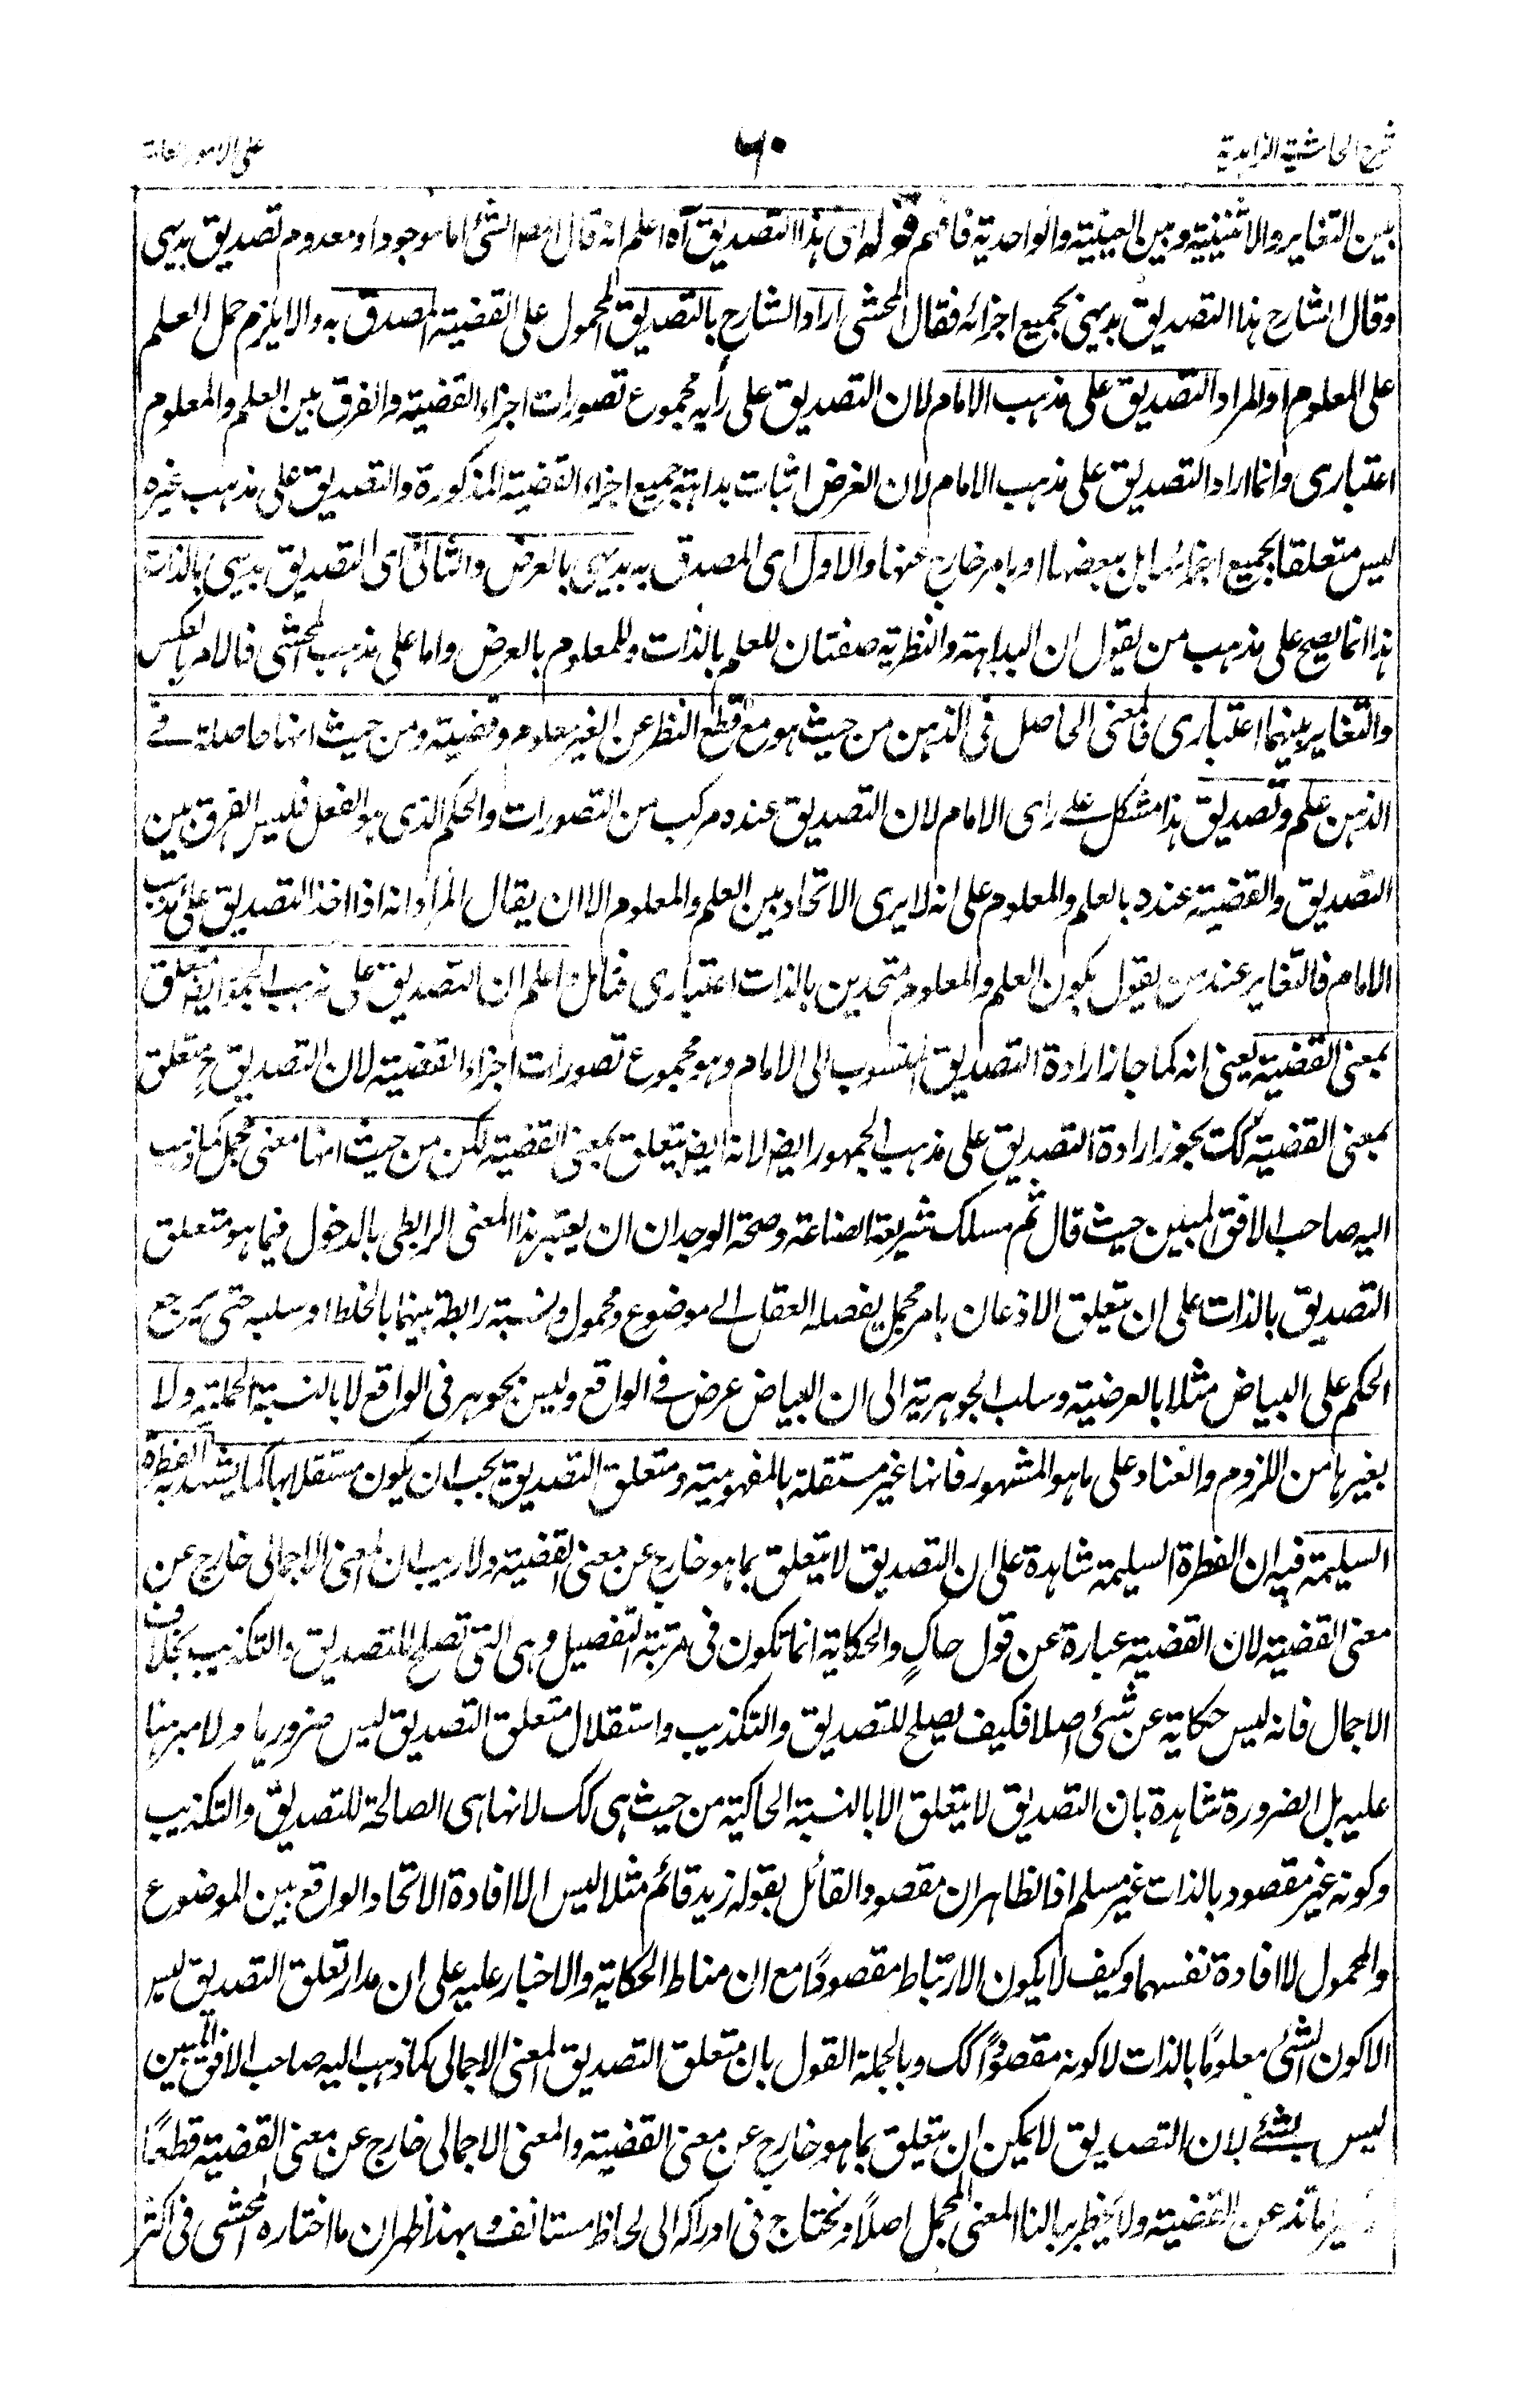 شرح الحاشية الزاهدية
٦٠
على الامور العامة
بين التغاير والاثنينية وبين العينية والواحدية فافهم قوله اى هذا التصديق آه اعلم انه قال المص الشئ اما موجود او معدوم تصديق بديهى
وقال الشارح هذا التصديق بديهى بجميع اجزائه فقال المحشى اراد الشارح بالتصديق المحمول على القضية المصدق به والا يلزم حمل العلم
على المعلوم او المراد التصديق على مذهب الامام لان التصديق على رأيه مجموع تصورات اجزاء القضية والفرق بين العلم والمعلوم
اعتبارى وانما اراد التصديق على مذهب الامام لان الغرض اثبات بداهة جميع اجزاء القضية المذكورة والتصديق على مذهب غيره
ليس متعلقا بجميع اجزائها بل ببعضها او بامر خارج عنها والاول اى المصدق به بديهى بالعرض والثانى اى التصديق بديهى بالذات
هذا انما يصح على مذهب من يقول ان البداهة والنظرية صفتان للعلم بالذات وللمعلوم بالعرض واما على مذهب المحشى فالامر بالعكس
والتغاير بينهما اعتبارى فالمعنى الحاصل فى الذهن من حيث هو مع قطع النظر عن الغير معلوم وقضية ومن حيث انها حاصلة فى
الذهن علم وتصديق هذا مشكل على راى الامام لان التصديق عنده مركب من التصورات والحكم الذى هو الفعل فليس الفرق بين
التصديق والقضية عنده بالعلم والمعلوم على انه لا يرى الاتحاد بين العلم والمعلوم الا ان يقال المراد انه اذا اخذ التصديق على مذهب
الامام فالتغاير عند من يقول بكون العلم والمعلوم متحدين بالذات اعتبارى فتامل واعلم ان التصديق على مذهب الجمهور ايضا متعلق
بمعنى القضية يعنى انه كما جاز ارادة التصديق المنسوب الى الامام وهو مجموع تصورات اجزاء القضية لان التصديق ح متعلق
بمعنى القضية كك يجوز ارادة التصديق على مذهب الجمهور ايض لانه ايض يتعلق بمعنى القضية لكن من حيث انها معنى مجمل كما ذهب
اليه صاحب الافق المبين حيث قال ثم مسلك شريعة الصناعة وصحة الوجدان ان يعتبر هذا المعنى الرابطى بالدخول فيما هو متعلق
التصديق بالذات على ان يتعلق الاذعان بامر مجمل يفصله العقل الى موضوع ومحمول ونسبة رابطة بينهما بالخلط او سلبه حتى يرجع
الحكم على البياض مثلا بالعرضية وسلب الجوهرية الى ان البياض عرض فى الواقع وليس بجوهر فى الواقع لا بالنسبة الحملية ولا
بغيرها من اللزوم والعناد على ما هو المشهور فانها غير مستقلة بالمفهومية ومتعلق التصديق يجب ان يكون مستقلا بها كما يشهد به الفطرة
السليمة فيه ان الفطرة السليمة شاهدة على ان التصديق لا يتعلق بما هو خارج عن معنى القضية ولا ريب ان المعنى الاجمالى خارج عن
معنى القضية لان القضية عبارة عن قول حاكٍ والحكاية انما تكون فى مرتبة التفصيل وهى التى تصلح للتصديق والتكذيب بخلاف
الاجمال فانه ليس حكاية عن شئ اصلا فكيف يصلح للتصديق والتكذيب واستقلال متعلق التصديق ليس ضروريا ولا مبرهنا
عليه بل الضرورة شاهدة بان التصديق لا يتعلق الا بالنسبة الحاكية من حيث هى كك لانها هى الصالحة للتصديق والتكذيب
وكونه غير مقصود بالذات غير مسلم اذ الظاهر ان مقصود القائل بقوله زيد قائم مثلا ليس الا افادة الاتحاد الواقع بين الموضوع
والمحمول لا افادة نفسهما وكيف لا يكون الارتباط مقصودًا مع ان مناط الحكاية والاخبار عليه على ان مدار تعلق التصديق ليس
الا كون الشئ معلومًا بالذات لا كونه مقصودًا كك وبالجملة القول بان متعلق التصديق المعنى الاجمالى كما ذهب اليه صاحب الافق المبين
ليس بشئ لان التصديق لا يمكن ان يتعلق بما هو خارج عن معنى القضية والمعنى الاجمالى خارج عن معنى القضية قطعًا
ما نذعن القضية ولا يخطر ببالنا المعنى المجمل اصلاً ونحتاج فى ادراكه الى لحاظ مستانف وبهذا ظهر ان ما اختاره المحشى فى اكثر